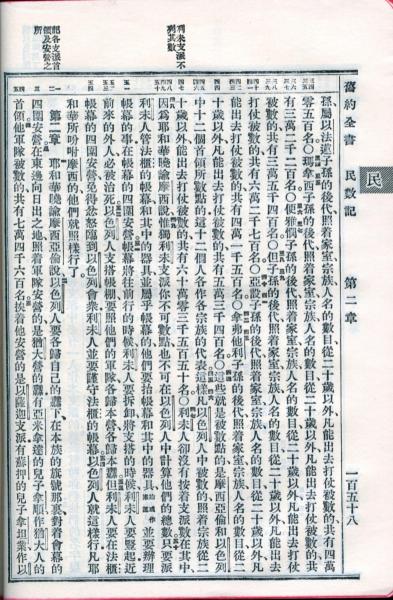 舊約全書 民數記 第二章 一百五十八
民
利未支派不
列其數
記各支派首
領及安營之
所
孫屬以法蓮子孫的後代照着家室宗族人名的數目從二十歲以外凡能出去打仗被數的共有四萬
零五百名○瑪拿西子孫的後代照着家室宗族人名的數目從二十歲以外凡能出去打仗被數的共
有三萬二千二百名○便雅憫子孫的後代照着家室宗族人名的數目從二十歲以外凡能出去打仗
被數的共有三萬五千四百名○但子孫的後代照着家室宗族人名的數目從二十歲以外凡能出去
打仗被數的共有六萬二千七百名○亞設子孫的後代照着家室宗族人名的數目從二十歲以外凡
能出去打仗被數的共有四萬一千五百名○拿弗他利子孫的後代照着家室宗族人名的數目從二
十歲以外凡能出去打仗被數的共有五萬三千四百名○這些就是被數點的是摩西亞倫和以色列
中十二個首領所數點的這十二個人各作各宗族的代表這樣凡以色列人中被數的照着宗族從二
十歲以外能出去打仗被數的共有六十萬零三千五百五十名○利未人却沒有按着支派數在其中
因爲耶和華曉諭摩西說惟獨利未支派你不可數點也不可在以色列人中計算他們的總數只要派
利未人管法櫃的帳幕和其中的器具並屬乎帳幕的他們要抬帳幕和其中的器具並要辦理
帳幕的事在帳幕的四圍安營帳幕將往前行的時候利未人要拆卸將支搭的時候利未人要豎起近
前來的外人必被治死以色列人支搭帳棚要照他們的軍隊各歸本營各歸本纛但利未人要在法櫃
帳幕的四圍安營免得忿怒臨到以色列會衆利未人並要謹守法櫃的帳幕以色列人就這樣行凡耶
和華所吩咐摩西的他們就照樣行了
第二章 耶和華曉諭摩西亞倫說以色列人要各歸自己的纛下在本族的旗號那裏對着會幕的
四圍安營在東邊向日出之地照着軍隊安營的是猶大營的纛有亞米拿達的兒子拿順作猶大人的
首領他軍隊被數的共有七萬四千六百名挨着他安營的是以薩迦支派有蘇押的兒子拿坦業作以